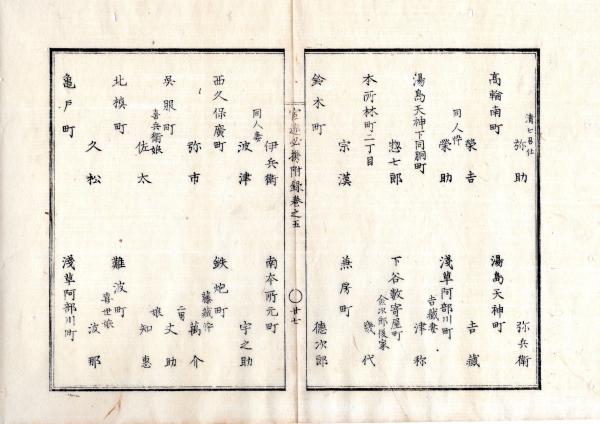 清七召仕
弥助
弥兵衛
高輪南町
湯島天神町
栄吉
吉蔵
同人忰
榮助
淺草阿部川町
湯島天神下同朋町
吉藏妻
津称
惣七郎
下谷數寄屋町
本所林町二丁目
金次郎後家
幾代
宗漢
兼房町
鈴木町
徳次郎
官途必携附録巻之五
廿七
伊兵衛
南本所元町
同人妻
波津
宇之助
西久保廣町
鉄炮町
弥市
藤藏忰
萬介
呉服町
二男
丈助
喜兵衛娘
佐太
娘
知惠
北槙町
難波町
久松
喜世娘
波那
亀戸町
淺草阿部川町